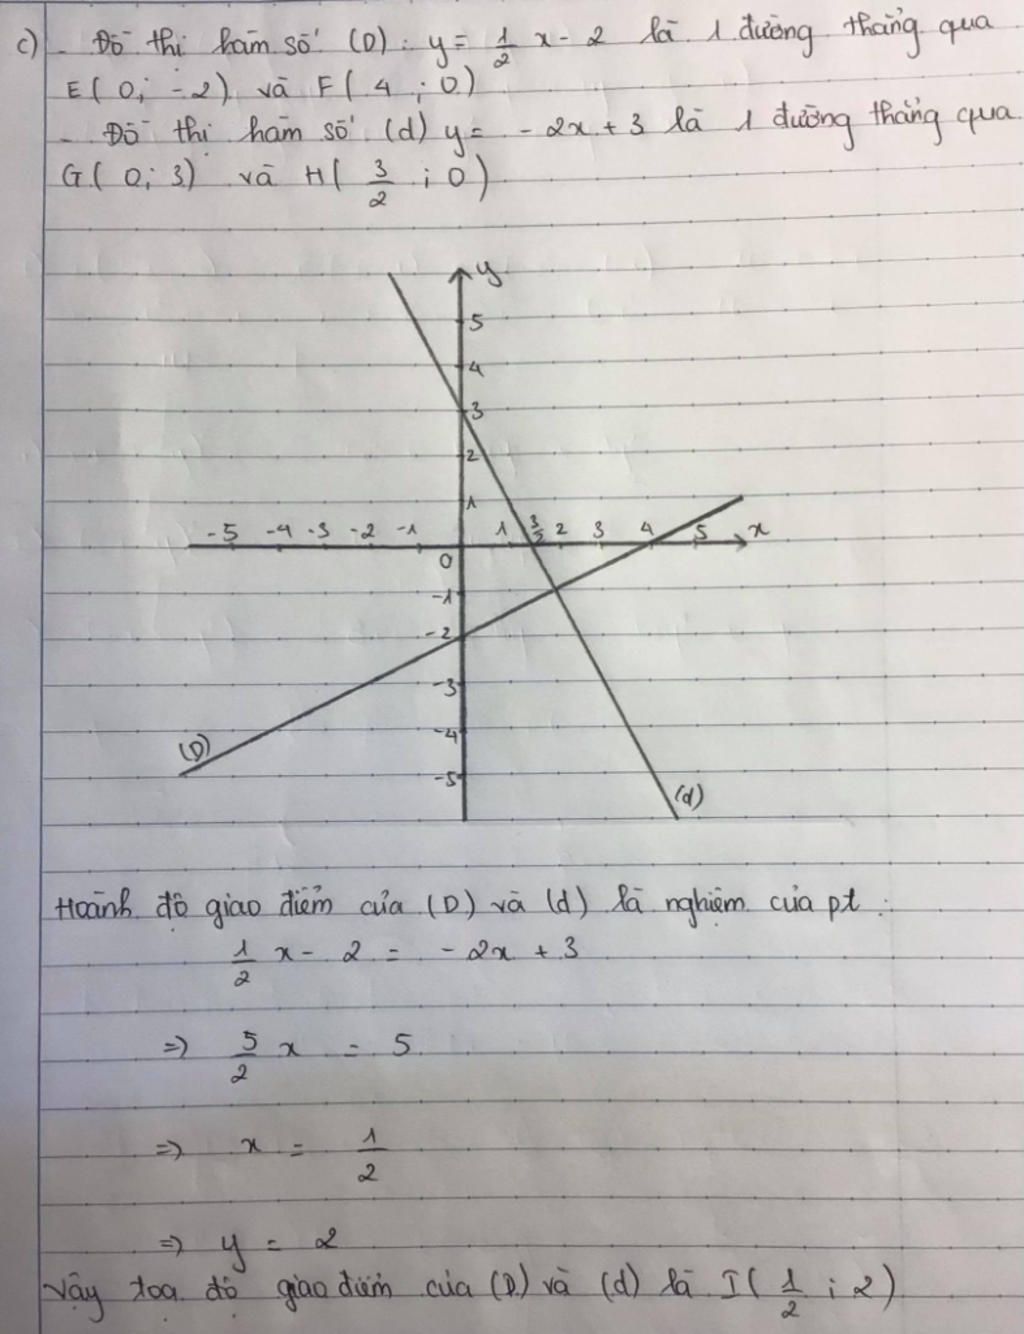 c) - Đồ thị hàm số (D): y = 1/2 x - 2 là 1 đường thẳng qua
E( 0; -2) và F( 4 ; 0)
- Đồ thị hàm số (d) y = - 2x + 3 là 1 đường thẳng qua
G( 0; 3) và H( 3/2 ; 0)
y
5
4
3
2
1
-5 -4 -3 -2 -1 1 3/2 2 3 4 5 x
0
-1
-2
-3
-4
(D)
-5
(d)
Hoành độ giao điểm của (D) và (d) là nghiệm của pt :
1/2 x - 2 = - 2x + 3
=> 5/2 x = 5
=> x = 1/2
=> y = 2
Vậy tọa độ giao điểm của (D) và (d) là I( 1/2 ; 2)